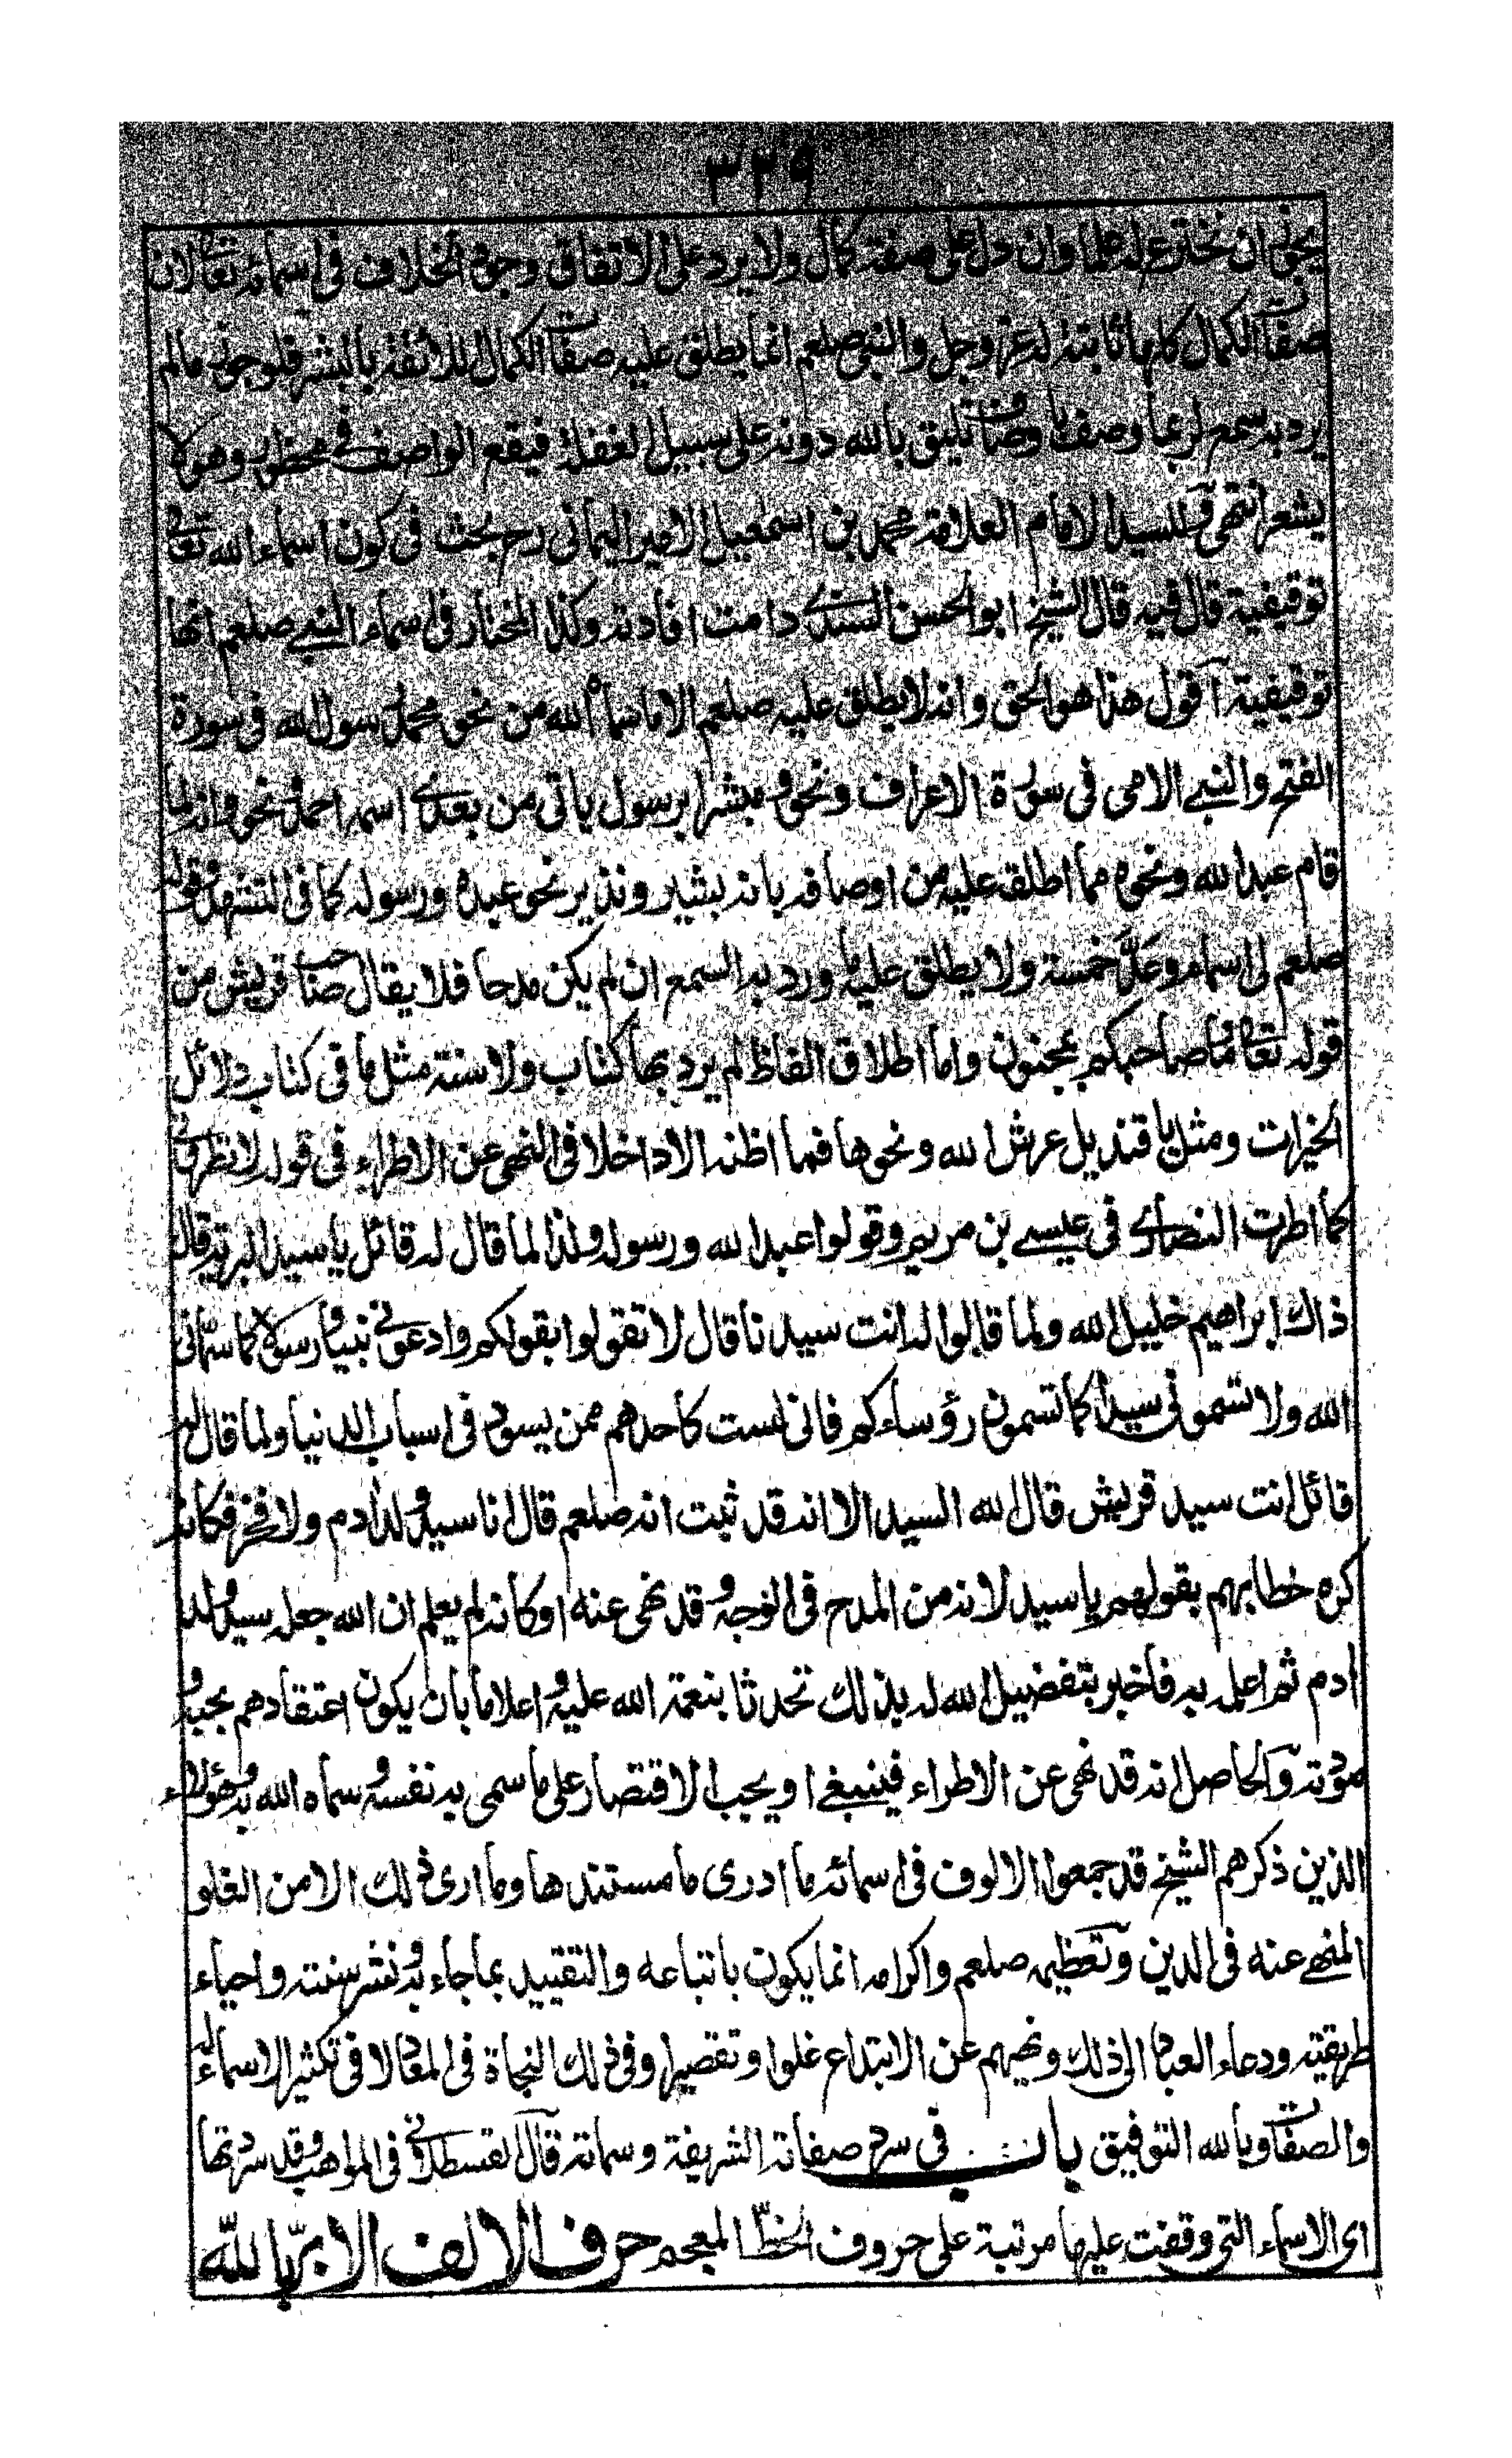 ٣٣٩
يجوز ان نخترع له علما وان دل على صفة كمال ولا يرد على الاتفاق وجود الخلاف فى اسمائه تعالى لان
صفات الكمال كلها ثابتة له عز وجل والنبى صلعم انما يطلق عليه صفات الكمال اللائقة بالبشر فلو جوز مالم
يرد به سمع لربما وصف باوصاف تليق بالله دونه على سبيل الغفلة فيقع الواصف فى محظور وهو لا
يشعر انتهى وللسيد الامام العلامة محمد بن اسمعيل الامير اليمانى رح بحث فى كون اسماء الله تعالى
توقيفية قال فيه قال الشيخ ابو الحسن السندى دامت افادته وكذا المختار فى اسماء النبى صلعم انها
توقيفية اقول هذا هو الحق وانه لا يطلق عليه صلعم الا ما سماه الله من نحو محمد رسول الله فى سورة
الفتح والنبى الامى فى سورة الاعراف ونحو و مبشرا برسول ياتى من بعدى اسمه احمد ونحو وانه لما
قام عبد الله ونحوه مما اطلق عليه من اوصافه بانه بشير ونذير نحو عبده ورسوله كما فى التشهد وقوله
صلعم لى اسماء وعدّ خمسة ولا يطلق عليه ما ورد به السمع ان لم يكن مدحا فلا يقال صاحب قريش من
قوله تعالى وما صاحبكم بمجنون واما اطلاق الفاظ لم يرد بها كتاب ولا سنة مثل ما فى كتاب دلائل
الخيرات ومثل يا قنديل عرش الله ونحوها فما اظنه الا داخلا فى النهى عن الاطراء فى قوله لا تطرونى
كما اطرت النصارى فى عيسى بن مريم وقولوا عبد الله ورسوله ولذا لما قال له قائل يا سيد البرية قال
ذاك ابراهيم خليل الله ولما قالوا له انت سيدنا قال لا تقولوا بقولكم وادعونى نبيا ورسولا كما سمّانى
الله ولا تسمونى سيدا كما تسمون رؤساءكم فانى لست كاحدهم ممن يسود فى اسباب الدنيا ولما قال له
قائل انت سيد قريش قال الله السيد الا انه قد ثبت انه صلعم قال انا سيد ولد ادم ولا فخر فكانه
كره خطابهم بقولهم يا سيد لانه من المدح فى الوجه وقد نهى عنه او كانه لم يعلم ان الله جعله سيد ولد
ادم ثم اعلم به فاخبر بتفضيل الله له بذلك تحدثا بنعمة الله عليه واعلاما بان يكون اعتقادهم بحبه و
مودته والحاصل انه قد نهى عن الاطراء فينبغى او يجب الاقتصار على ما سمى به نفسه وسماه الله به وهؤلاء
الذين ذكرهم الشيخ قد جمعوا الالوف فى اسمائه ما ادرى ما مستندها وما ارى ذلك الا من الغلو
المنهى عنه فى الدين وتعظيمه صلعم واكرامه انما يكون باتباعه والتقييد بما جاء به ونشر سنته واحياء
طريقته ودعاء العباد الى ذلك ونهيهم عن الابتداع غلوا وتقصيرا وفى ذلك النجاة فى المعاد لا فى تكثير الاسماء له
والصفات وبالله التوفيق باب فى سرد صفاته الشريفة وسماته قال القسطلانى فى المواهب وقد سردتها
اى الاسماء التى وقفت عليها مرتبة على حروف الخطّ المعجم حرف الالف الابرّ بالله